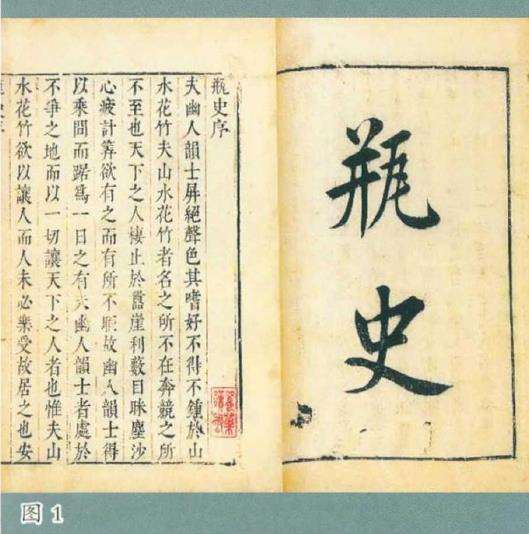 瓶史
瓶史序
夫幽人韻士屏絕聲色其嗜好不得不鍾於山
水花竹夫山水花竹者名之所不在奔競之所
不至也天下之人棲止於囂崖利藪目眯塵沙
心疲計筭欲有之而有所不暇故幽人韻士得
以乘間而踞爲一日之有夫幽人韻士者處於
不爭之地而以一切讓天下之人者也惟夫山
水花竹欲以讓人而人未必樂受故居之也安
图 1